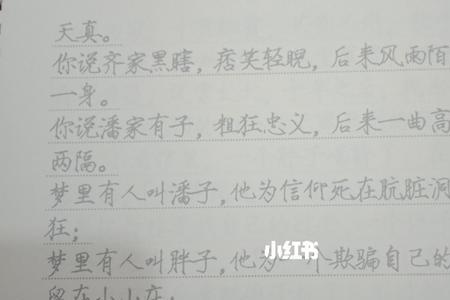 天真。
你说齐家黑瞎，痞笑轻睨，后来风雨陌
一身。
你说潘家有子，粗狂忠义，后来一曲高
两隔。
梦里有人叫潘子，他为信仰死在肮脏洞
狂；
小红书
梦里有人叫胖子，他为一个欺骗自己的
留在小小庄；